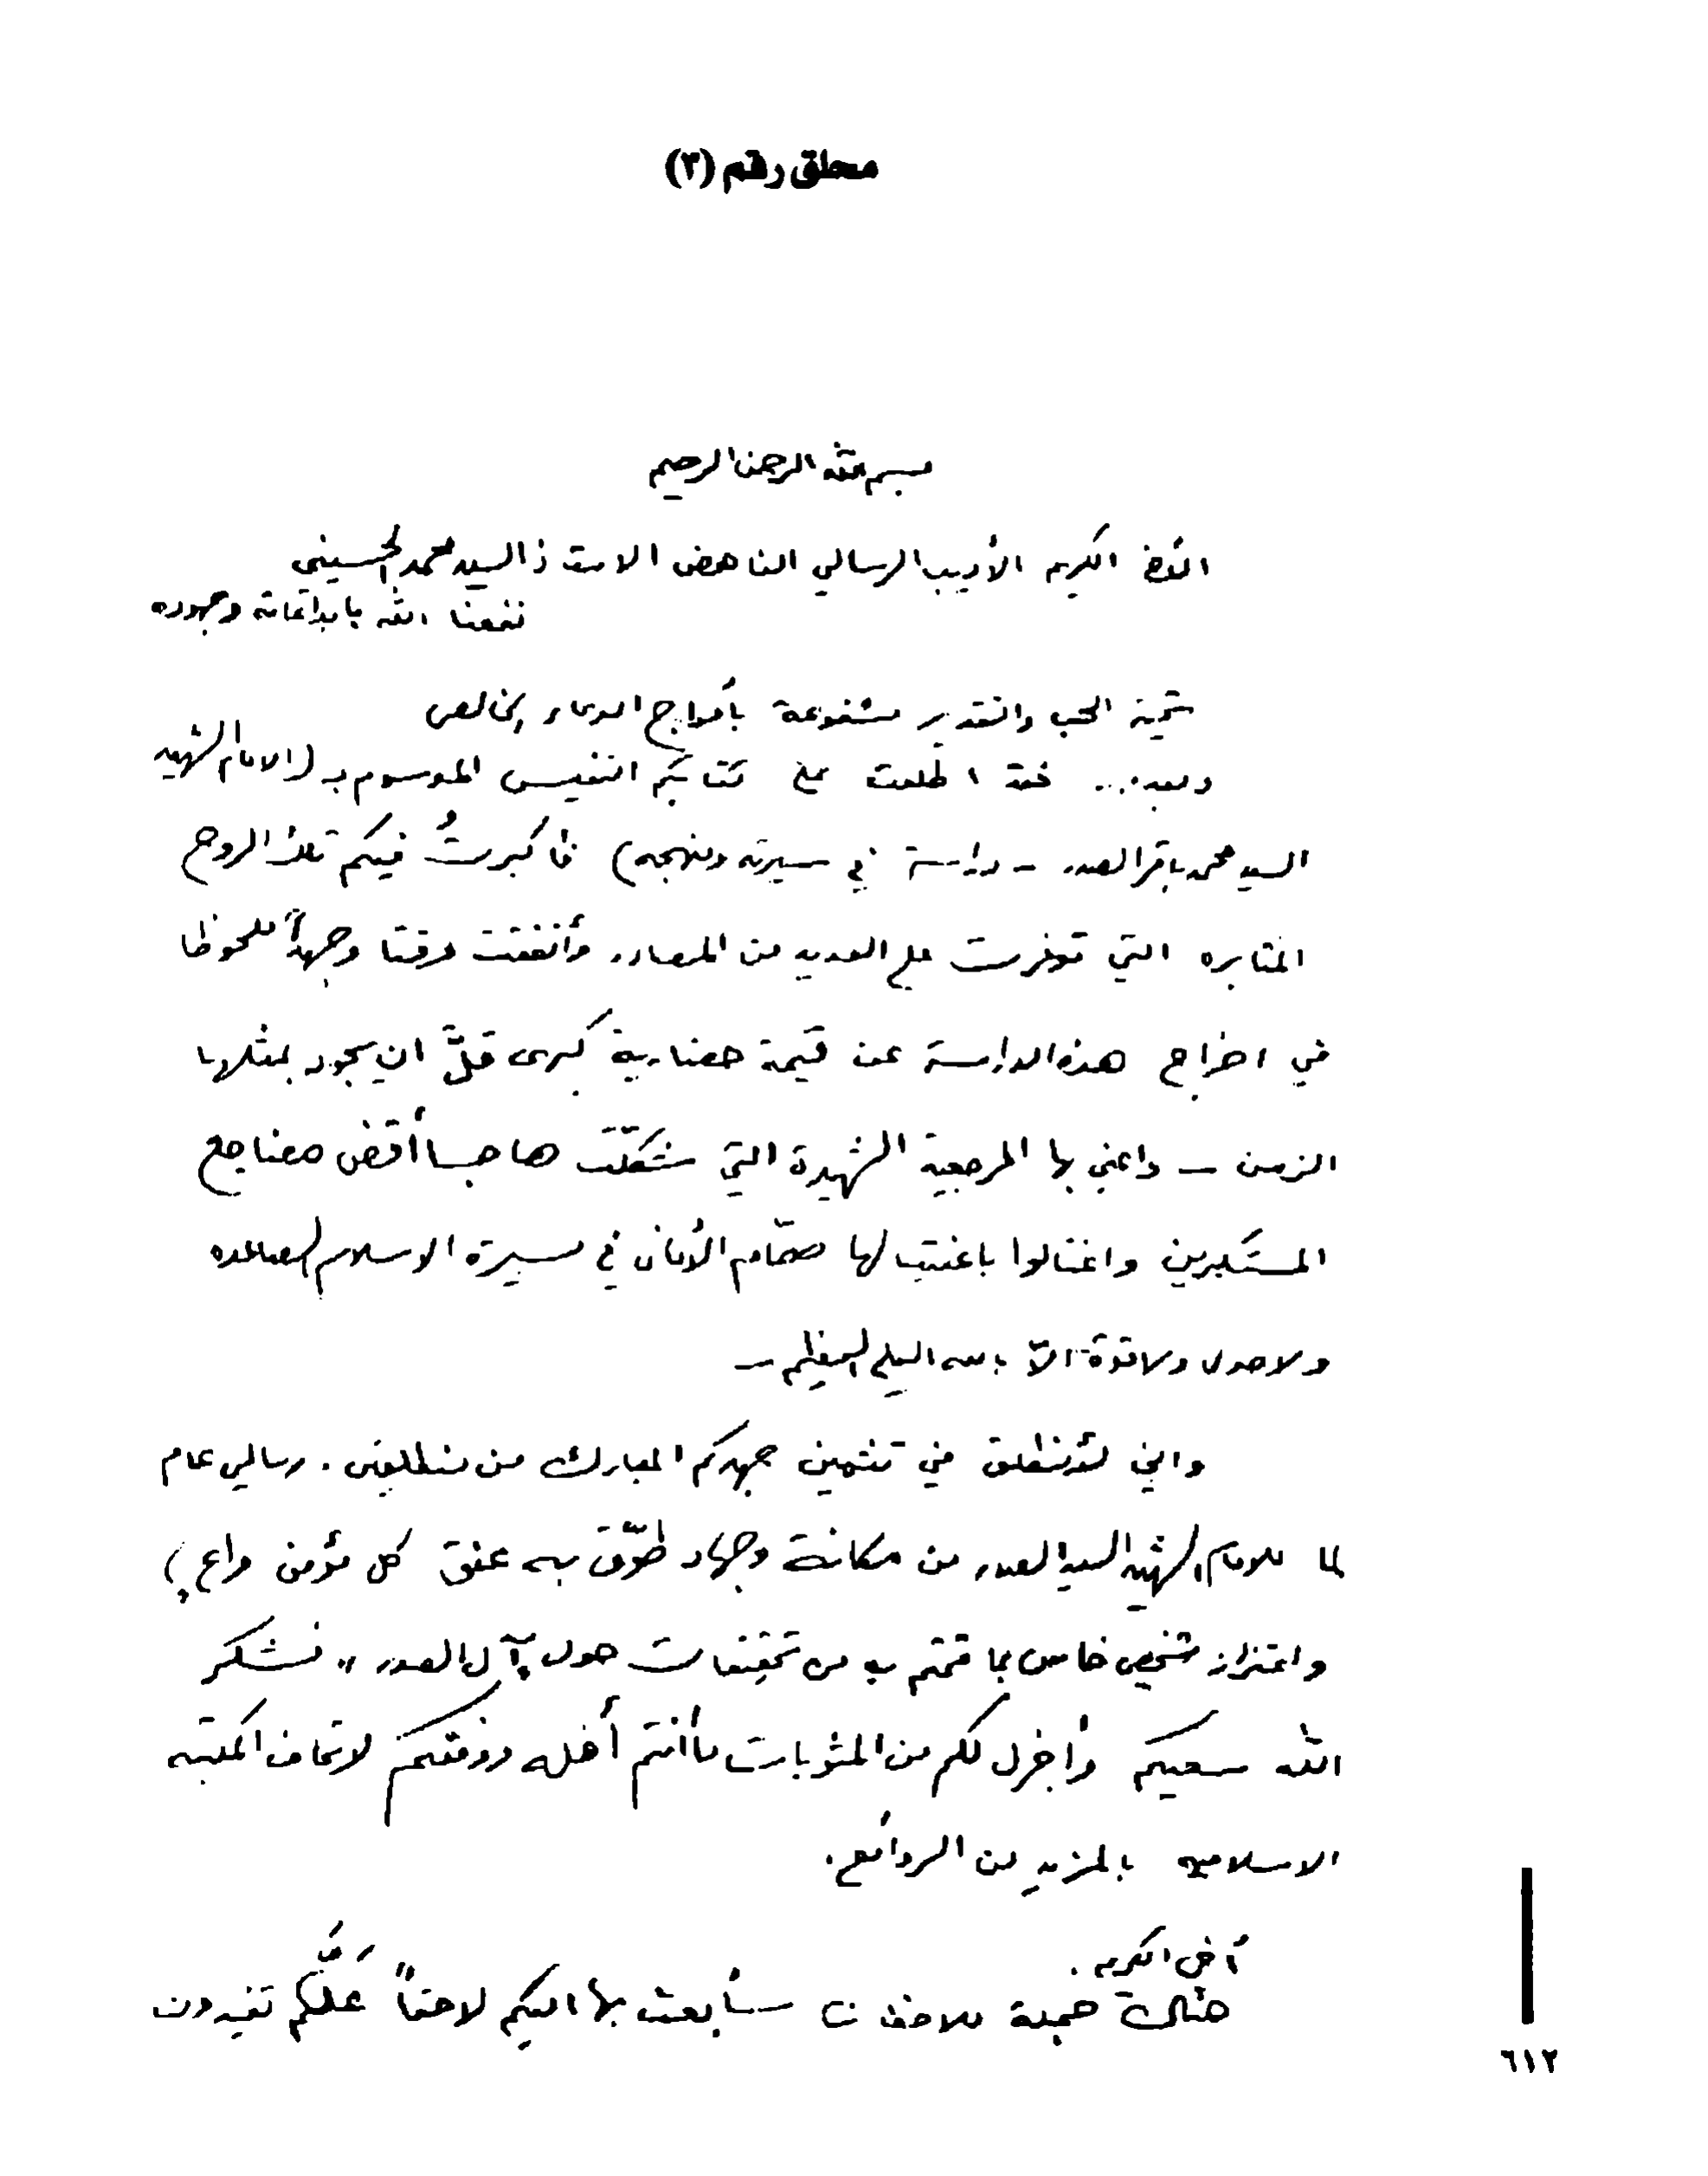 محلق رقم (٣)
بسم الله الرحمن الرحيم
الأخ الكريم الأديب الرسالي الناهض الاستاذ السيد محمد الحسيني
نفعنا الله بابداعاته وجهوده
تحية الحب والتقدير مشفوعة بأفواج الدعاء الخالص
وبعد... فقد اطلعت على كتابكم النفيس الموسوم بـ (الامام الشهيد
السيد محمد باقر الصدر - دراسة في سيرته ومنهجه) فأكبرتُ فيكم تلك الروح
المثابره التي توفرت على العديد من المصادر وأنفقت وقتا وجهداً ملحوظا
في اخراج هذه الدراسة عن قيمة حضارية كبرى قلَّ ان يجود بمثلها
الزمن - واعني بها المرجعية الشهيدة التي شكّلت هاجسا أقض مضاجع
المستكبرين واغتالوا باغتيالها صمّام الأمان في مسيرة الاسلام الصاعده
ولا حول ولا قوة الاّ بالله العلي العظيم -
واني لأنطلق في تثمين جهدكم المبارك من منطلقين . رسالي عام
لما للامام الشهيد السيد الصدر من مكانة وجهاد طوّق به عنق كل مؤمن واع ,)
واعتزاز شخصي خاص بما قمتم به من تحقيقات حول آل الصدر ,, فشكر
الله سعيكم وأجزل لكم من المثوبات ما أنتم أهله ووفقكم لاتحاف المكتبه
الاسلاميه بالمزيد من الروائع.
أخي الكريم.
هناك جملة ملاحظات سأبعث بها اليكم لاحقاً عَلَّكم تفيدون
٦١٢